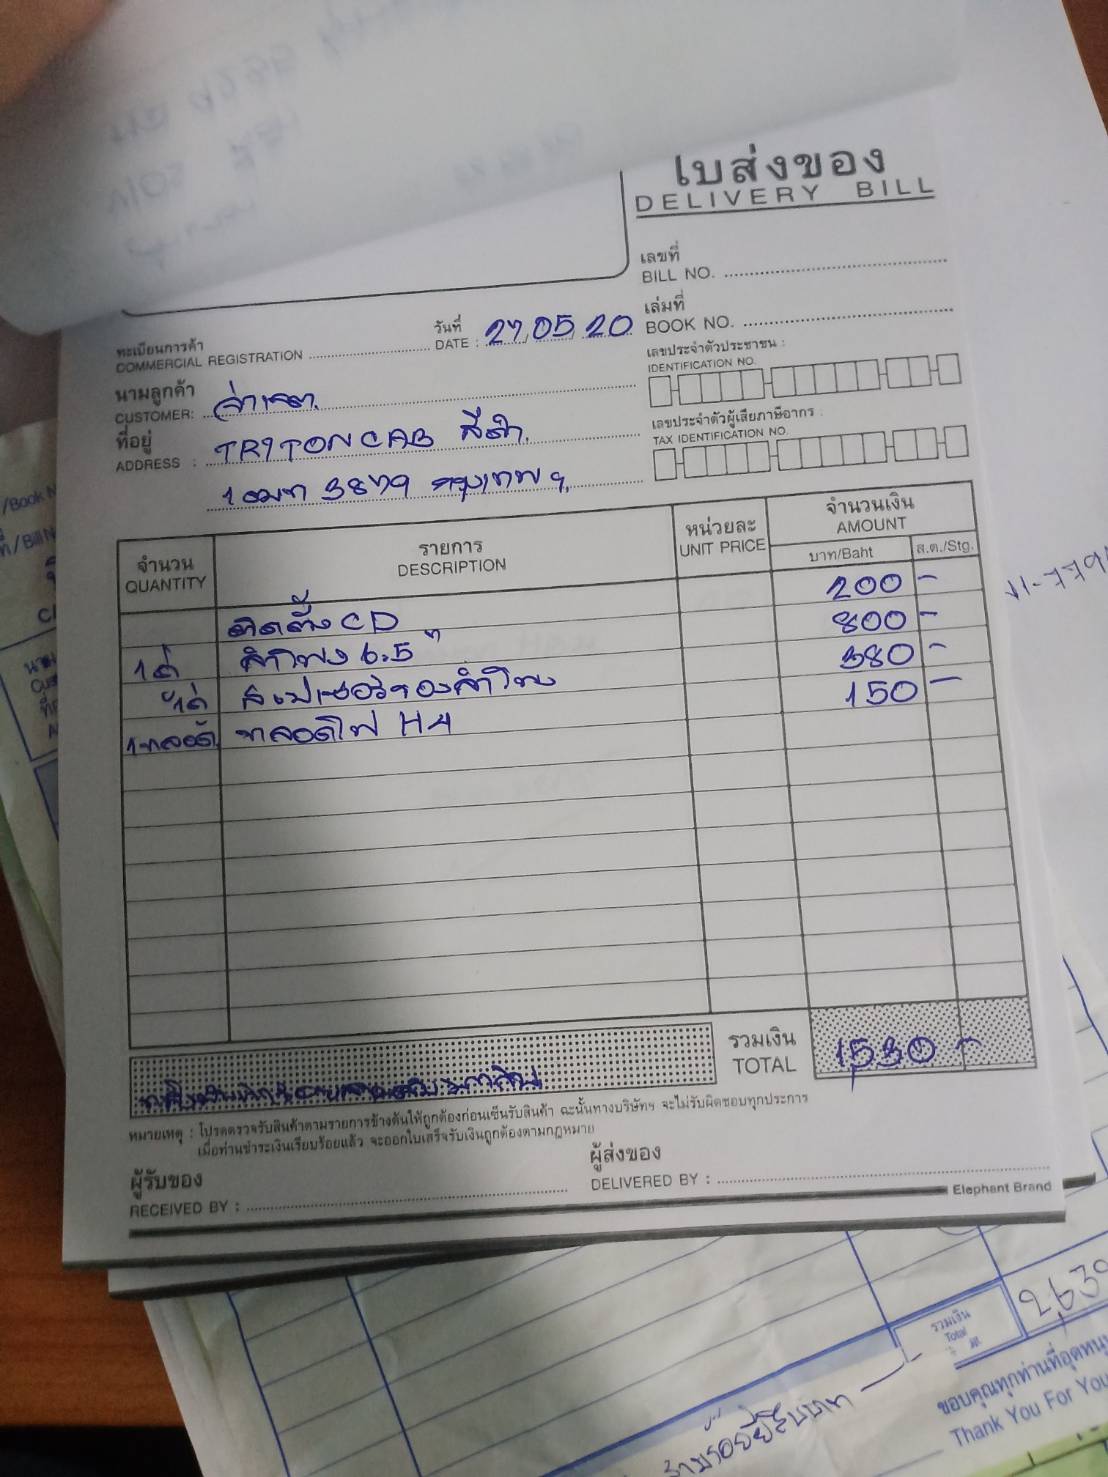 ใบส่งของ
DELIVERY BILL
เลขที่
BILL NO.
เล่มที่
BOOK NO.
วันที่
DATE : 27,05,20
ทะเบียนการค้า
COMMERCIAL REGISTRATION
เลขประจำตัวประชาชน :
IDENTIFICATION NO.
นามลูกค้า
CUSTOMER: จ่าเขต
เลขประจำตัวผู้เสียภาษีอากร :
TAX IDENTIFICATION NO.
ที่อยู่
ADDRESS : TRITON CAB สีดำ
1ฒฆ 3879 กรุงเทพฯ
จำนวน
QUANTITY
รายการ
DESCRIPTION
หน่วยละ
UNIT PRICE
จำนวนเงิน
AMOUNT
บาท/Baht
ส.ต./Stg.
ติดตั้ง CD 200 -
1คู่ ลำโพง 6.5" 800 -
1คู่ สเปเซอร์รองลำโพง 380 -
1หลอด หลอดไฟ H4 150 -
รวมเงิน
TOTAL 1,530 -
หมายเหตุ : โปรดตรวจรับสินค้าตามรายการข้างต้นให้ถูกต้องก่อนเซ็นรับสินค้า ฉะนั้นทางบริษัทฯ จะไม่รับผิดชอบทุกประการ
เมื่อท่านชำระเงินเรียบร้อยแล้ว จะออกใบเสร็จรับเงินถูกต้องตามกฎหมาย
ผู้รับของ
RECEIVED BY :
ผู้ส่งของ
DELIVERED BY :
Elephant Brand
รวมเงิน
Total
2,639
ขอบคุณทุกท่านที่อุดหนุน
Thank You For You